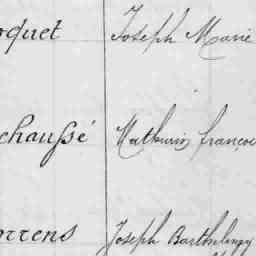 oquet Joseph Marie
chaussé Mathurin françoi
orrens Joseph Barthelemy